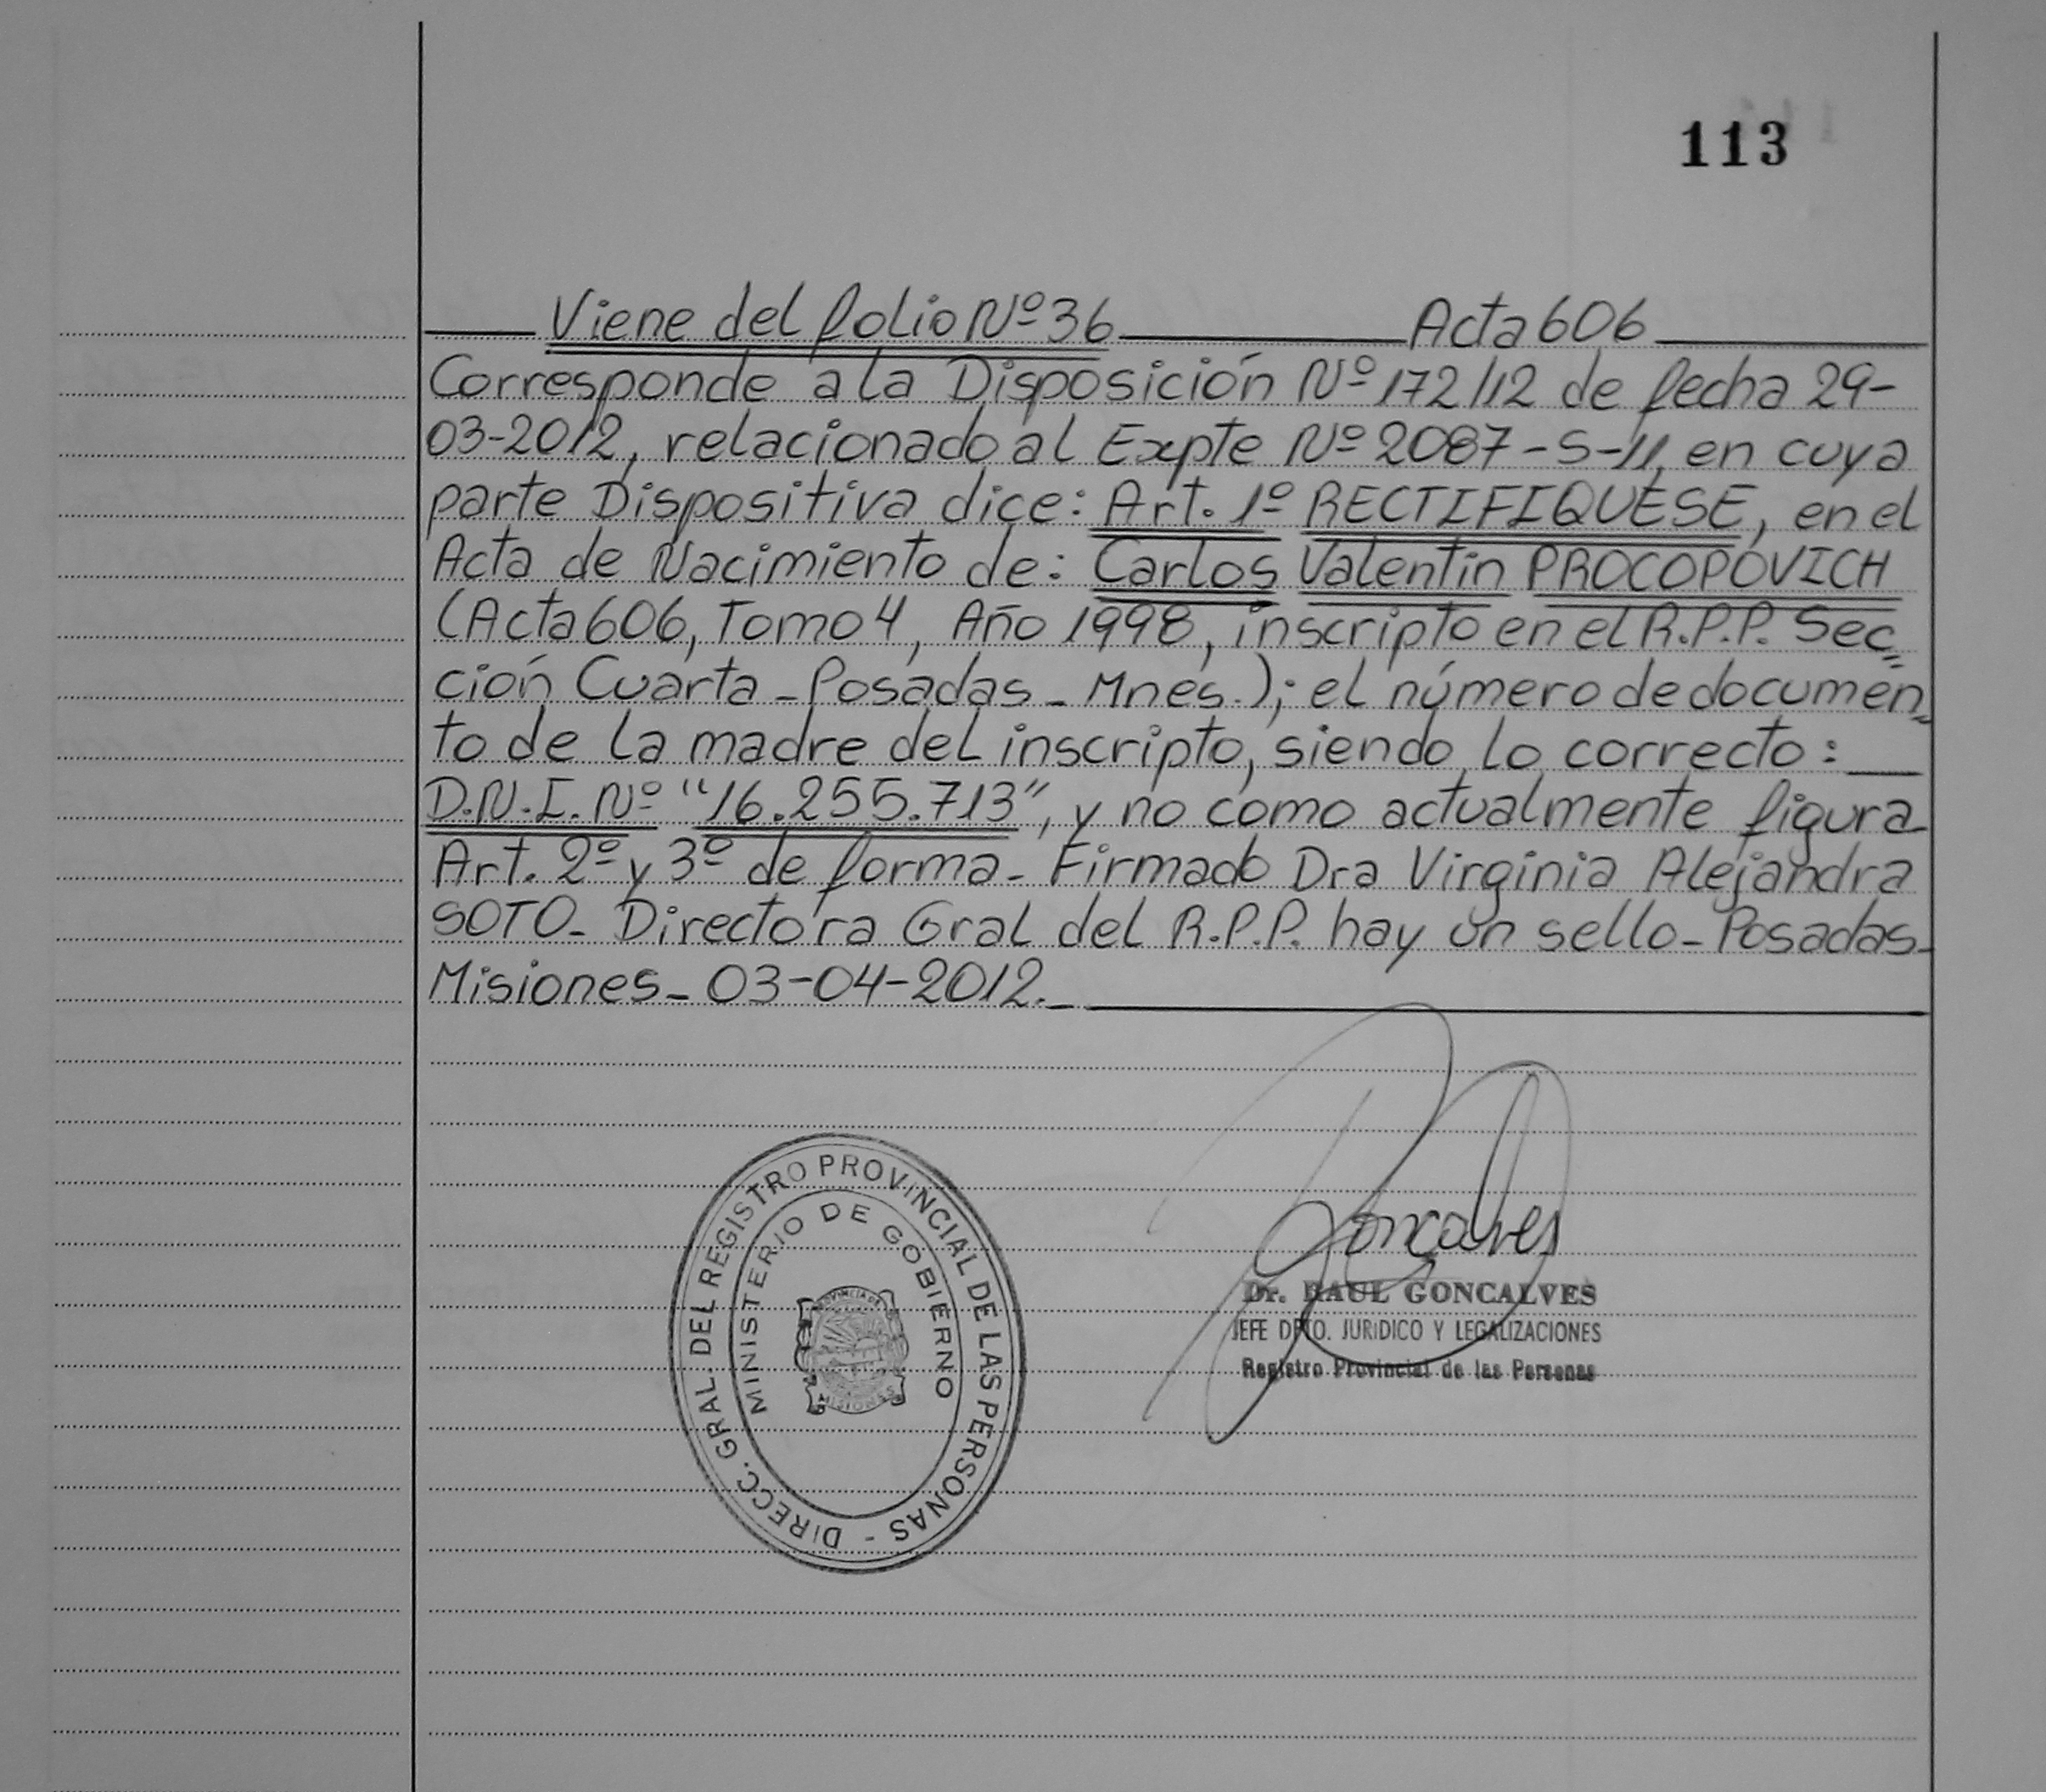 113
Viene del folio Nº 36 Acta 606
Corresponde a la Disposición Nº 172/12 de fecha 29-
03-2012, relacionado al Expte Nº 2087-S-11, en cuya
parte Dispositiva dice: Art. 1º RECTIFIQUESE, en el
Acta de Nacimiento de: Carlos Valentin PROCOPOVICH
(Acta 606, Tomo 4, Año 1998, inscripto en el R.P.P. Sec=
ción Cuarta - Posadas - Mnes.); el número de documen=
to de la madre del inscripto, siendo lo correcto:
D.N.I. Nº "16.255.713", y no como actualmente figura
Art. 2º y 3º de forma - Firmado Dra Virginia Alejandra
SOTO - Directora Gral del R.P.P. hay un sello - Posadas -
Misiones - 03-04-2012.
DIRECC. GRAL. DEL REGISTRO PROVINCIAL DE LAS PERSONAS -
MINISTERIO DE GOBIERNO
PROVINCIA DE
MISIONES
Goncalves
Dr. RAUL GONCALVES
JEFE DPTO. JURIDICO Y LEGALIZACIONES
Registro Provincial de las Personas